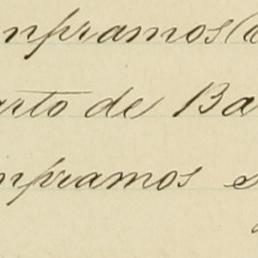 npramos
arto de Ba
npramos